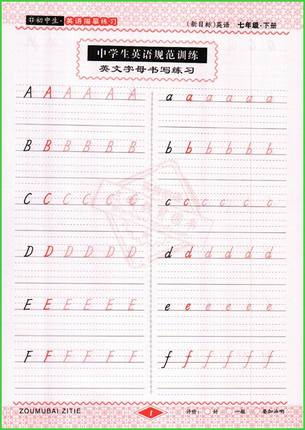 初中生·英语描摹练习
(新目标)英语 七年级·下册
中学生英语规范训练
英文字母书写练习
A A A A A A A
a a a a a a a a
B B B B B B B
b b b b b b b
C C C C C C C
c c c c c c c c
D D D D D D
d d d d d d d
E E E E E E E
e e e e e e e
F F F F F F F
f f f f f f f
ZOUMUBAI ZITIE
1
评价: 好 一般 要加油哟